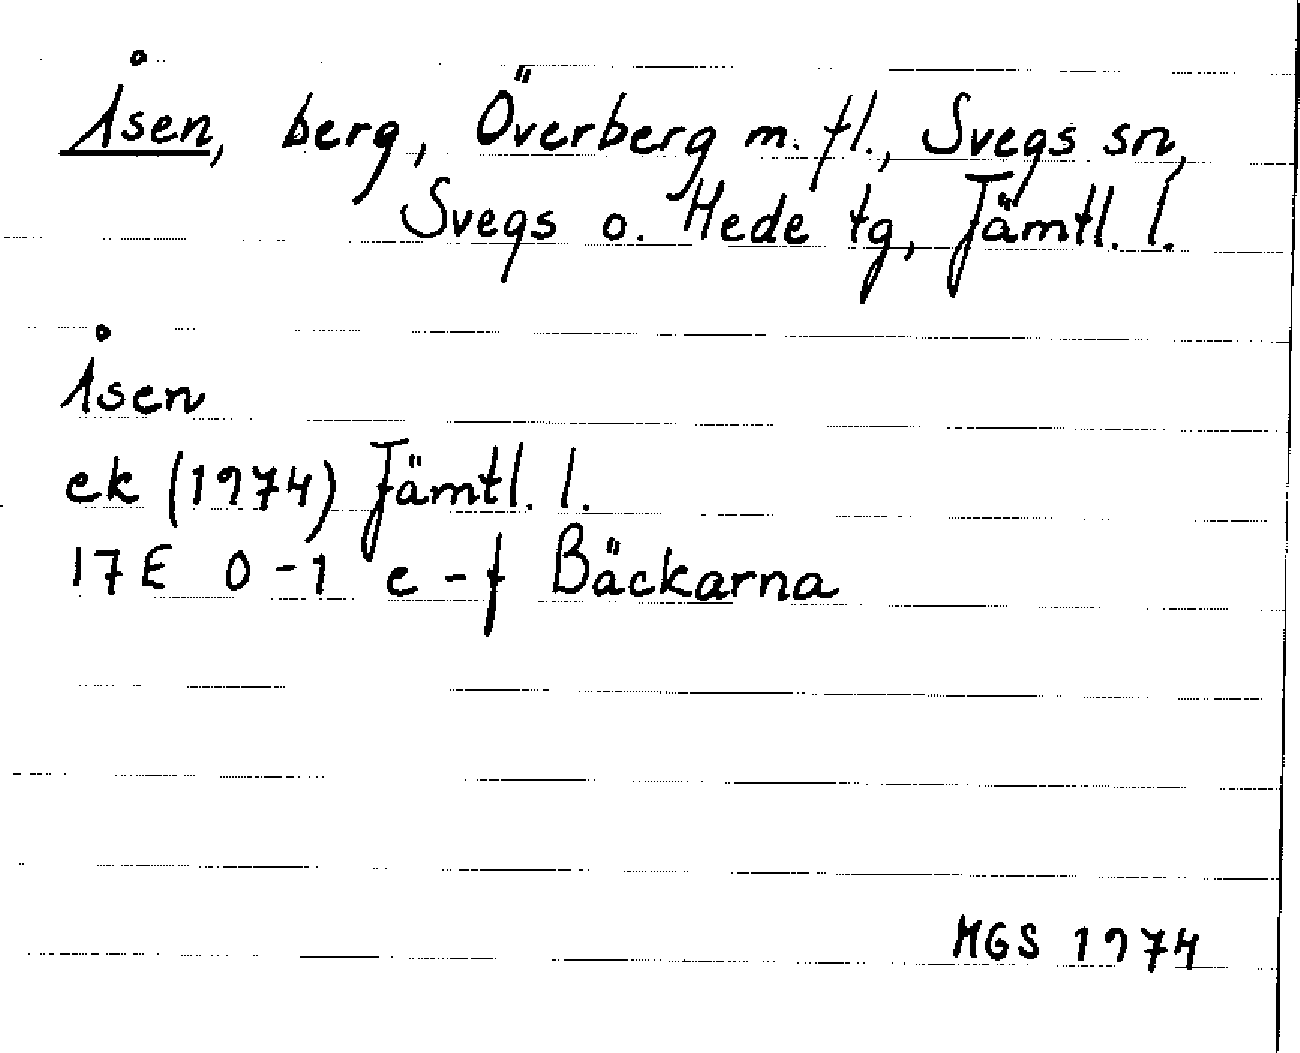 Åsen, berg, Överberg m. fl., Svegs sn,
Svegs o. Hede tg, Jämtl. l.
Åsen
ek (1974) Jämtl. l.
17E 0-1 e-f Bäckarna
MGS 1974